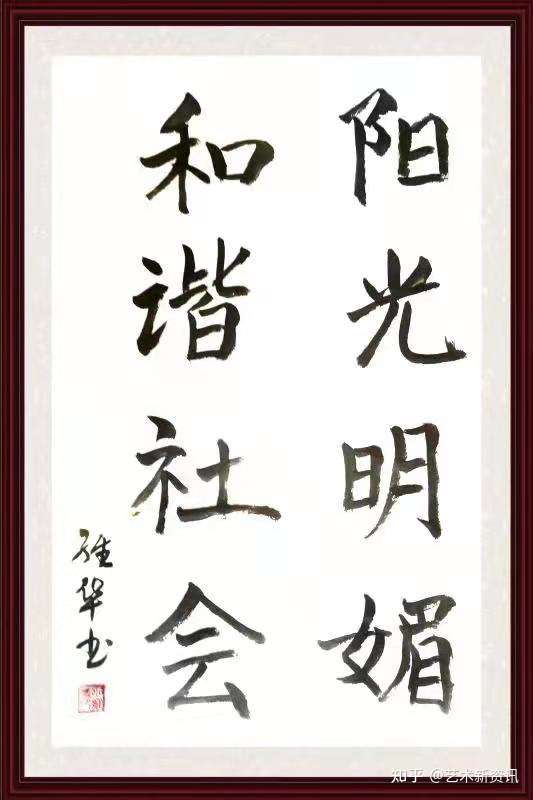 阳光明媚
和谐社会
华书
知乎 @艺术新资讯